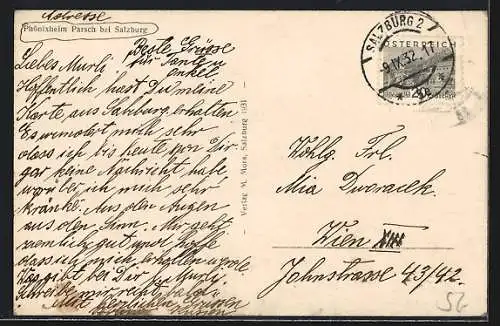 Adresse
Phönixheim Parsch bei Salzburg
Beste Grüsse
für Tante u
Onkel
Liebes Murli!
Hoffentlich hast Du meine
Karte aus Salzburg erhalten
Es wundert mich sehr
dass ich bis heute von Dir
gar keine Nachricht habe,
worüber ich mich sehr
kränke. Aus den Augen
aus den Sinn. Mir geht
ziemlich gut und hoffe
dass ich mich erholen werde.
Was gibt bei Dir Murli.
Schreibe mir recht bald.
Mit herzlichen Grüssen
Verlag M. Mora, Salzburg 1931
SALZBURG 2
9.IX.32
* 2e *
ÖSTERREICH
Wohlg. Frl.
Mia Dworacek
Wien XIII
Johnstrasse 43/42.